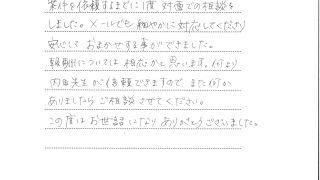 案件を依頼するまでに1度対面での相談を
しました。メールでも細やかに対応してくださり
安心しておまかせする事ができました。
報酬については相応かと思います。何より
内田先生が信頼できますので、また何か
ありましたらご相談させてください。
この度はお世話になりありがとうございました。